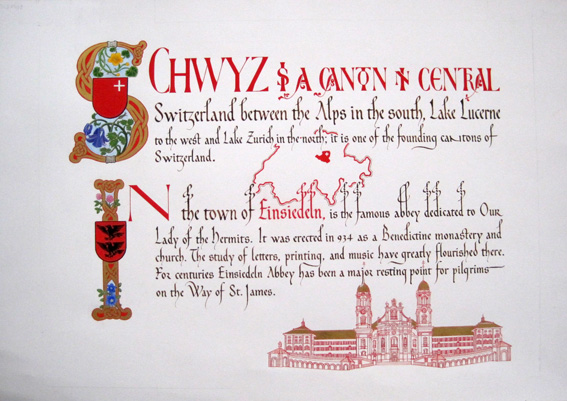 SCHWYZ IS A CANTON IN CENTRAL
Switzerland between the Alps in the south, Lake Lucerne
to the west and Lake Zurich in the north; it is one of the founding cantons of
Switzerland.
IN the town of Einsiedeln, is the famous abbey dedicated to Our
Lady of the Hermits. It was erected in 934 as a Benedictine monastery and
church. The study of letters, printing, and music have greatly flourished there.
For centuries Einsiedeln Abbey has been a major resting point for pilgrims
on the Way of St. James.